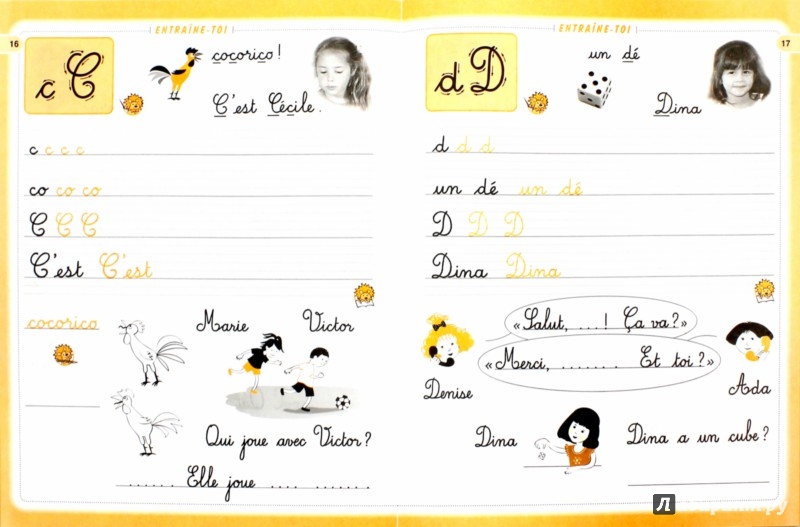 16
ENTRAÎNE-TOI
c C
cocorico !
C'est Cécile.
c c c c
co co co
C C C
C'est C'est
cocorico
Marie Victor
Qui joue avec Victor ?
...... Elle joue .... ........
17
ENTRAÎNE-TOI
d D
un dé
Dina
d d d
un dé un dé
D D D
Dina Dina
« Salut, ....! Ça va ? »
« Merci, ........ Et toi ? »
Denise
Ada
Dina
Dina a un cube ?
Лабиринт.ру